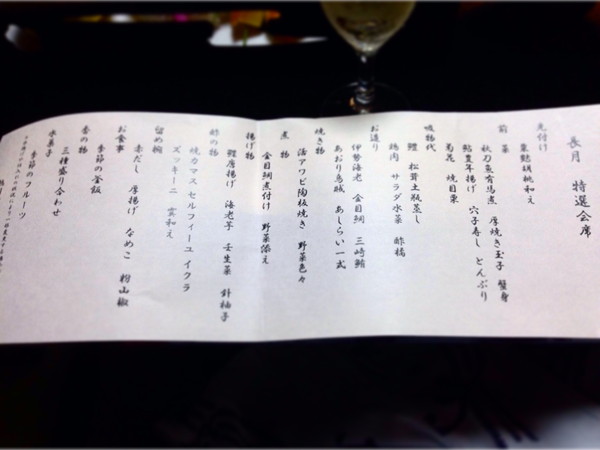 長月 特選会席
先付け
栗麩胡桃和え
前菜
秋刀魚有馬煮 厚焼き玉子 蟹身
鮎豊年揚げ 穴子寿し とんぶり
菊花 焼目栗
吸物代
鱧 松茸土瓶蒸し
鶏肉 サラダ水菜 酢橘
お造り
伊勢海老 金目鯛 三崎鮪
あおり烏賊 あしらい一式
焼き物
活アワビ陶板焼き 野菜色々
煮物
金目鯛煮付け 野菜添え
揚げ物
鱧唐揚げ 海老芋 壬生菜 針柚子
酢の物
焼カマス セルフィーユ イクラ
ズッキーニ 雲和え
留め椀
赤だし 厚揚げ なめこ 粉山椒
お食事
季節の釜飯
香の物
三種盛り合わせ
水菓子
季節のフルーツ